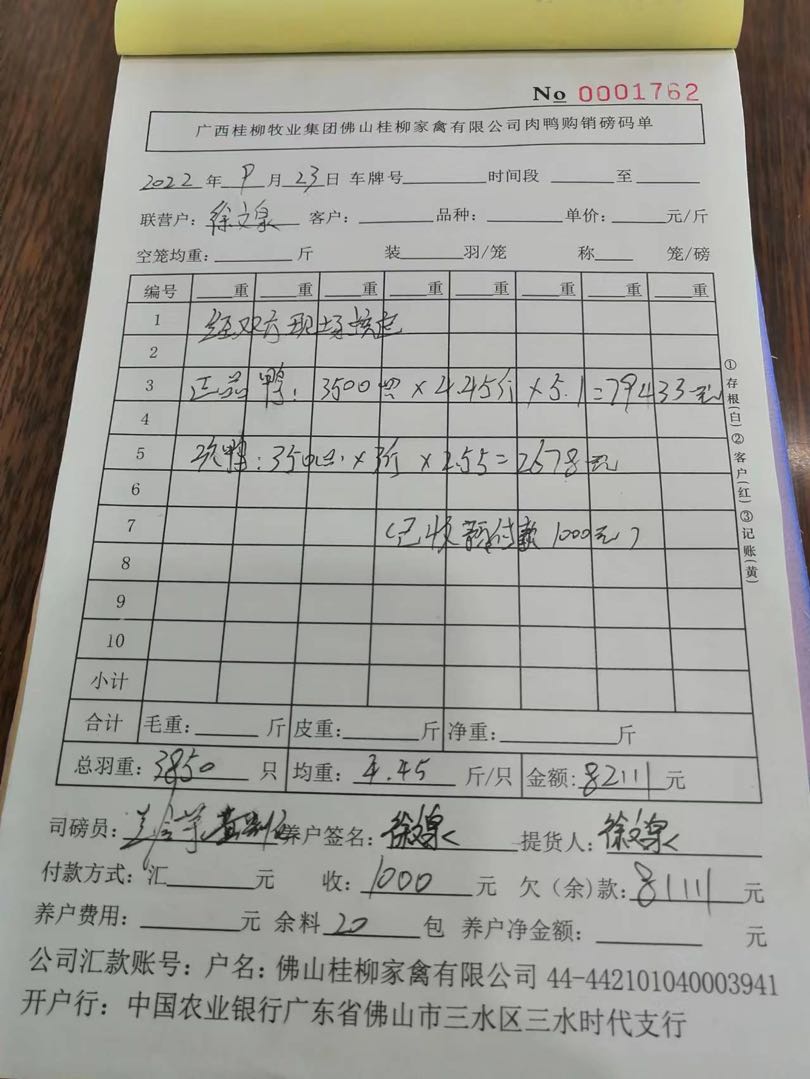 No 0001762
广西桂柳牧业集团佛山桂柳家禽有限公司肉鸭购销磅码单
2022年9月23日 车牌号 时间段 至
联营户：徐文泉 客户： 品种： 单价： 元/斤
空笼均重： 斤 装 羽/笼 称 笼/磅
编号 重 重 重 重 重 重 重 重
1 经双方现场
2
3 正品鸭：3500只×4.45斤×5.1=79433元
4
5 次鸭：350只×3斤×2.55=2678元
6
7 （已收预付款1000元）
8
9
10
小计
合计 毛重： 斤 皮重： 斤 净重： 斤
总羽重：3850 只 均重：4.45 斤/只 金额：82111元
司磅员： 养户签名：徐文泉 提货人：徐文泉
付款方式：汇 元 收：1000 元 欠（余）款：81111元
养户费用： 元 余料20 包 养户净金额： 元
公司汇款账号：户名：佛山桂柳家禽有限公司 44-442101040003941
开户行：中国农业银行广东省佛山市三水区三水时代支行
①存根(白)②客户(红)③记账(黄)